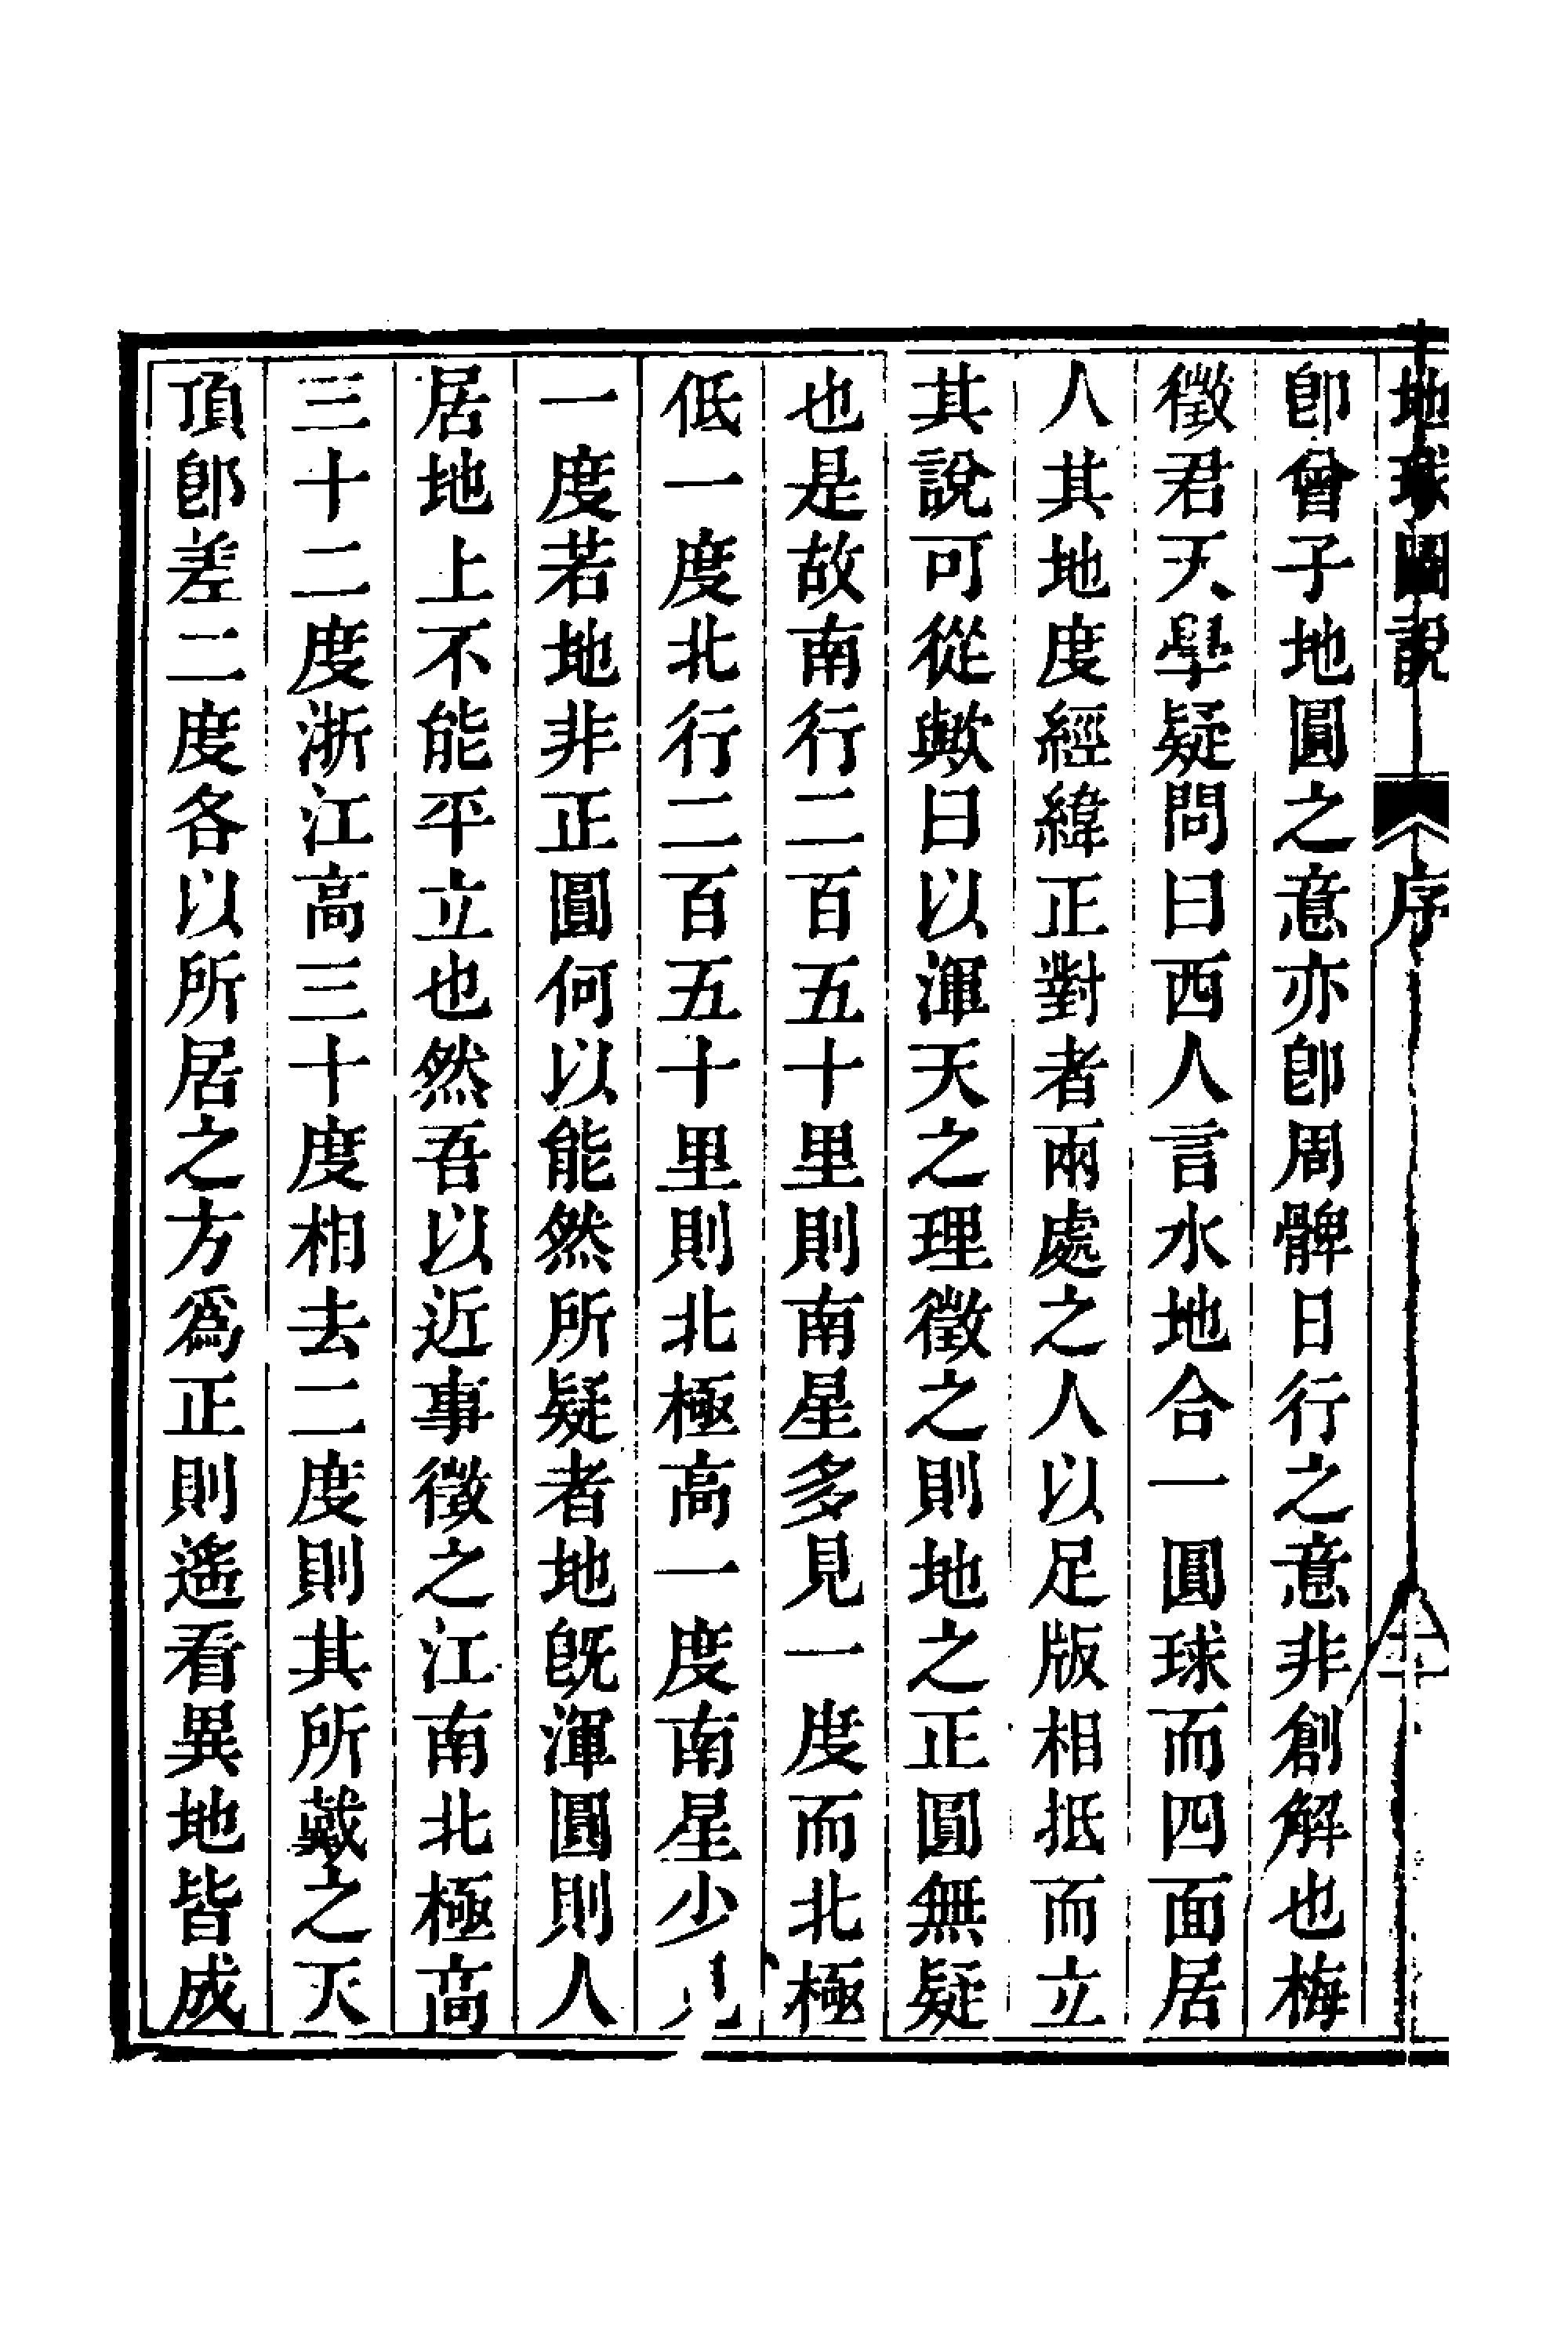 地球圖說 序
卽曾子地圓之意亦卽周髀日行之意非創解也梅
徵君天學疑問曰西人言水地合一圓球而四面居
人其地度經緯正對者兩處之人以足版相抵而立
其說可從歟曰以渾天之理徵之則地之正圓無疑
也是故南行二百五十里則南星多見一度而北極
低一度北行二百五十里則北極高一度南星少見
一度若地非正圓何以能然所疑者地旣渾圓則人
居地上不能平立也然吾以近事徵之江南北極高
三十二度浙江高三十度相去二度則其所戴之天
頂卽差二度各以所居之方爲正則遙看異地皆成